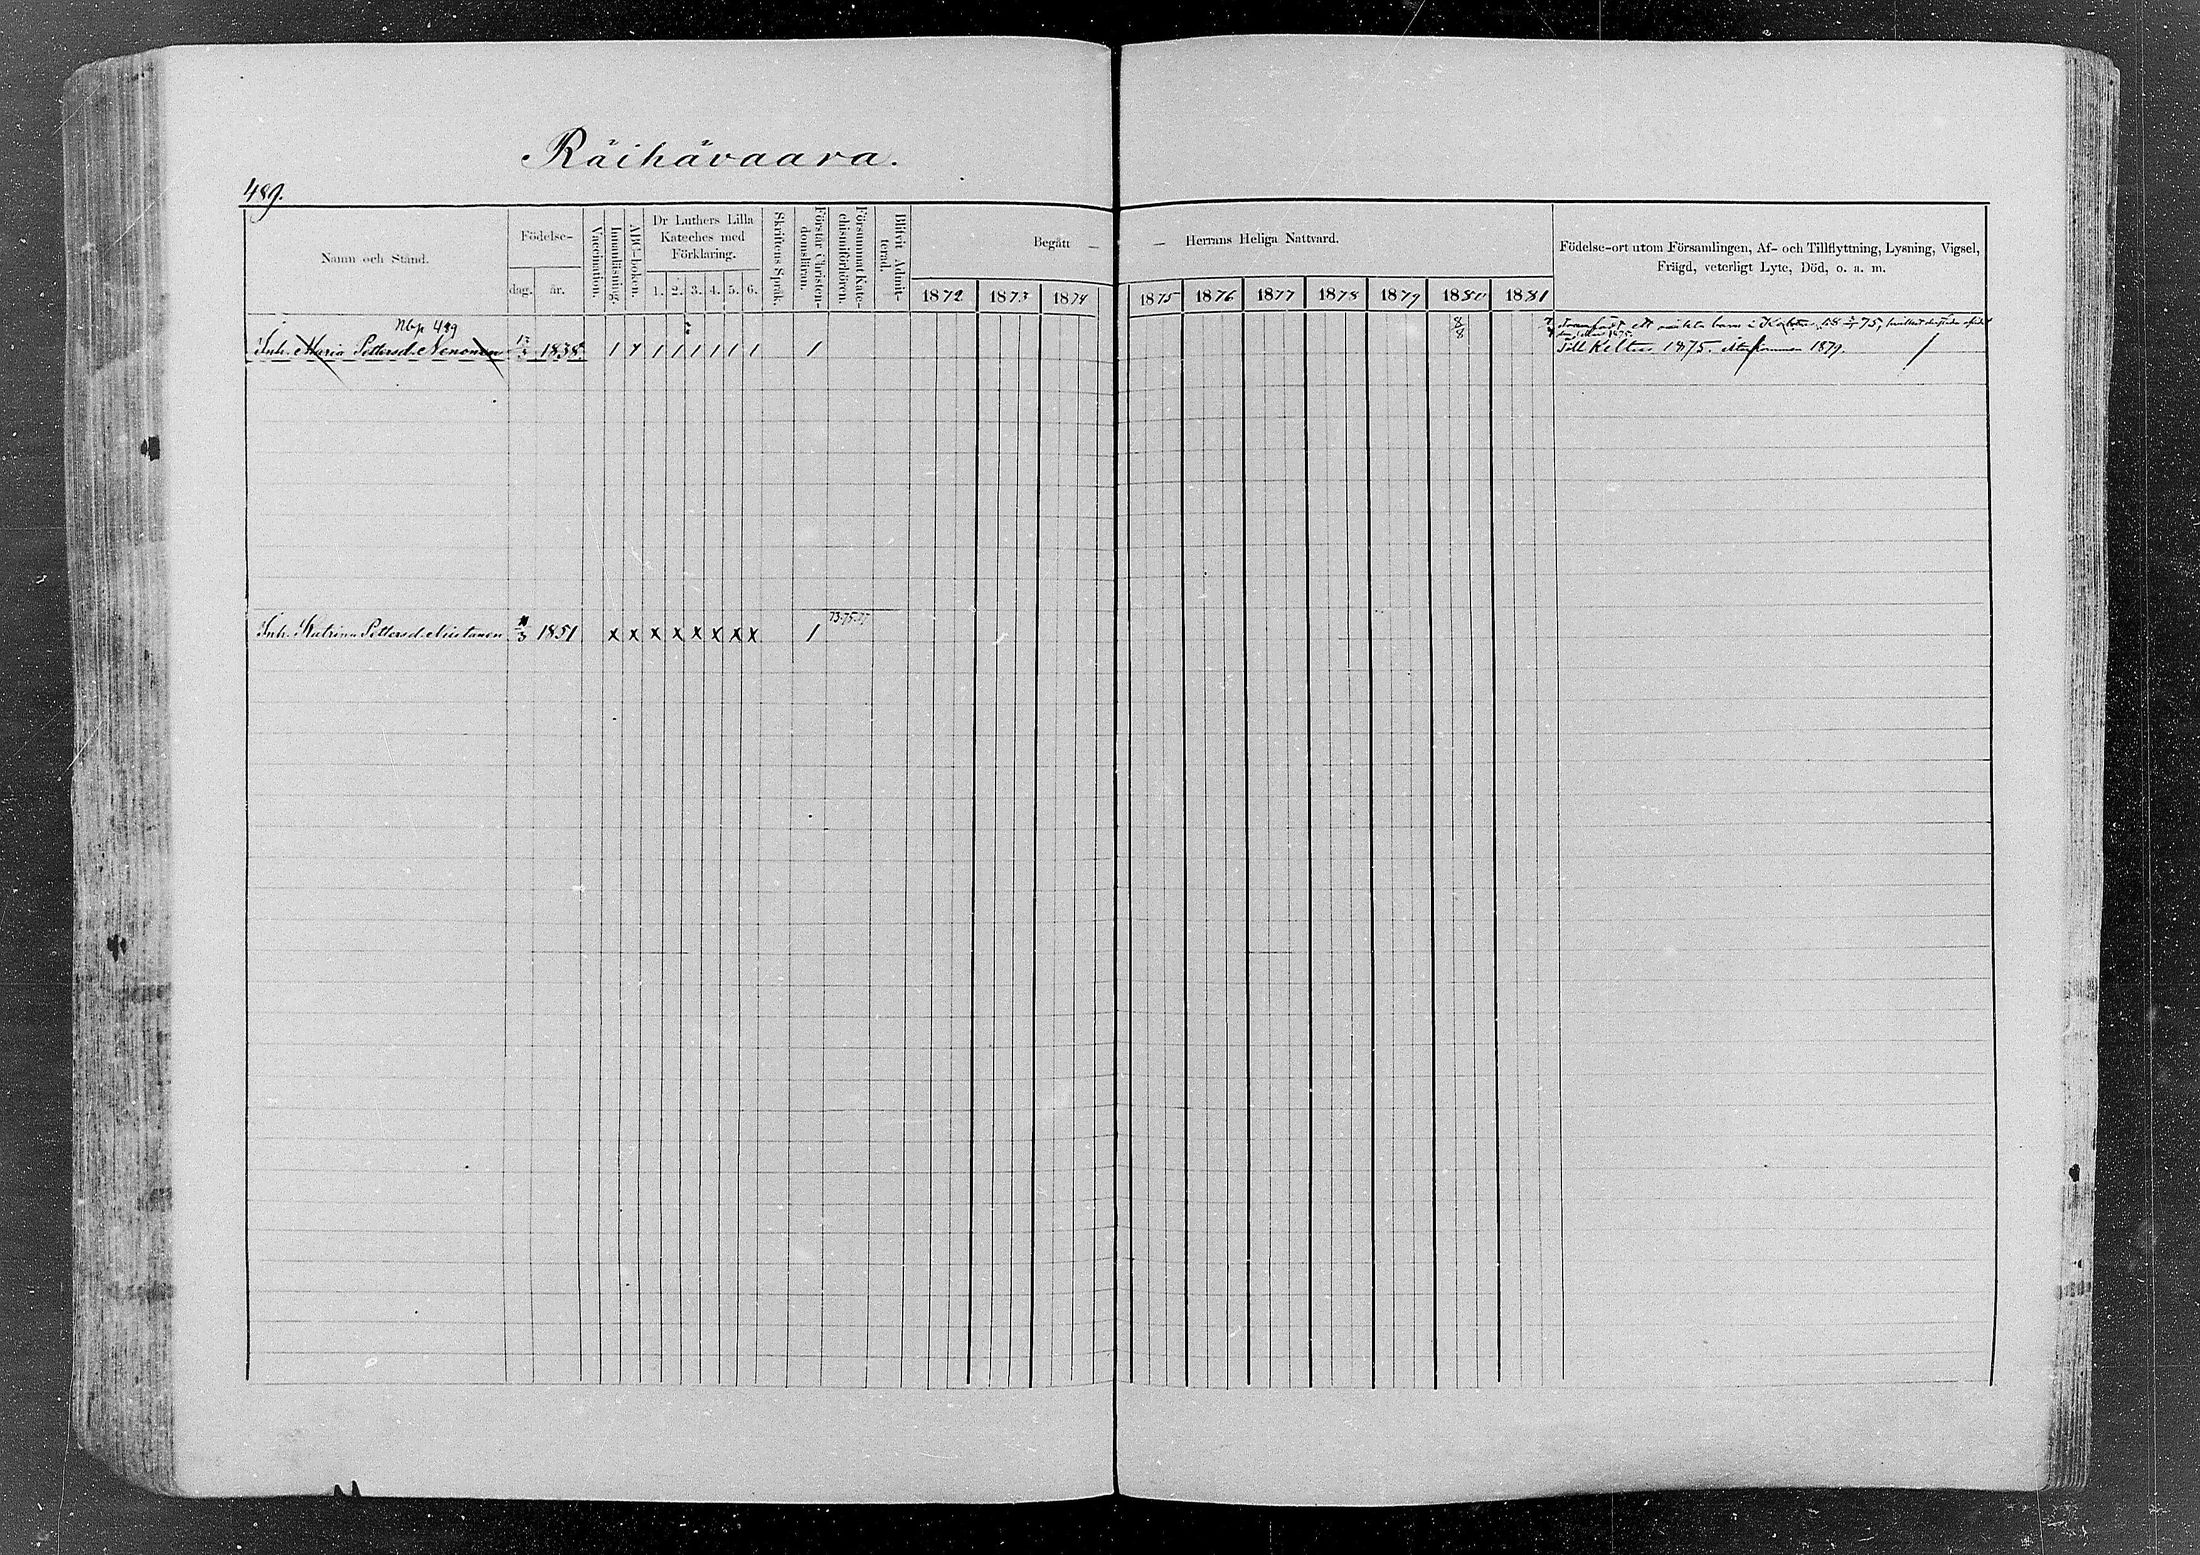 Räihävaara.
489.
Namn och Stånd.
Födelse-
dag. år.
Vaccination.
Innanläsning.
ABC-boken.
Dr Luthers Lilla Kateches med Förklaring.
1. 2. 3. 4. 5. 6.
Skriftens Språk.
Förstår Christendomsläran.
Försummat Katechismiförhören.
Blifvit Admitterad.
Begått — — Herrans Heliga Nattvard.
1872 1873 1874 1875 1876 1877 1878 1879 1880 1881
Födelse-ort utom Församlingen, Af- och Tillflyttning, Lysning, Vigsel,
Frägd, veterligt Lyte, Död, o. a. m.
Nbp 489
Inh. Maria Pettersd. Nenonen 1838 1 1 1 1 1 1 1 1 1 8/8
ett oäkta barn i 75,
Till Keltis 1875. 1879.
73.75.77.
Inh. Katrina Pettersd. 1851 x x x x x x x x 1